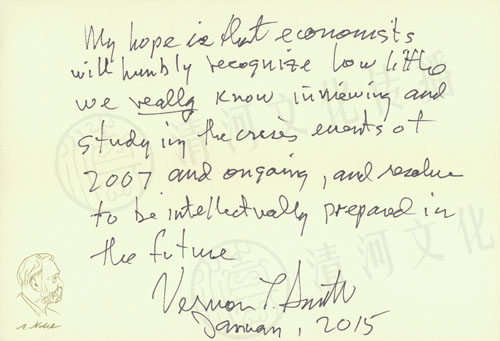 My hope is that economists
will humbly recognize how little
we really know in viewing and
studying the crisis events of
2007 and ongoing, and resolve
to be intellectually prepared in
the future
Vernon L. Smith
January, 2015
A. Nobel
清河文化传语
清河文化